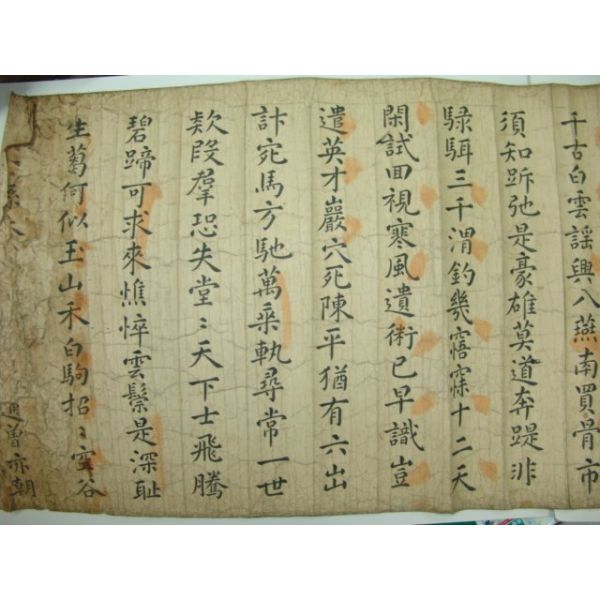 千古白雲謠興八燕南買骨市
須知跅弛是豪雄莫道奔踶非
騄駬三千渭釣幾寤寐十二天
閑試回視寒風遺術已早識豈
遣英才巖穴死陳平猶有六出
計宛馬方馳萬乘軌尋常一世
欵段羣恐失堂〻天下士飛騰
碧蹄可求來憔悴雲鬃是深耻
生蒭何似玉山禾白駒招〻空谷
曾亦朝